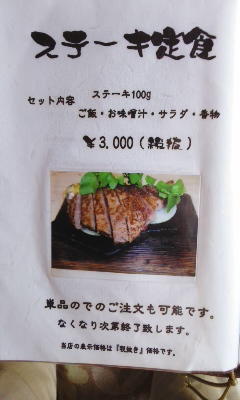 ステーキ定食
ステーキ100g
セット内容
ご飯・お味噌汁・サラダ・香物
￥3,000（税抜）
単品のでのご注文も可能です。
なくなり次第終了致します。
当店の表示価格は『税抜き』価格です。